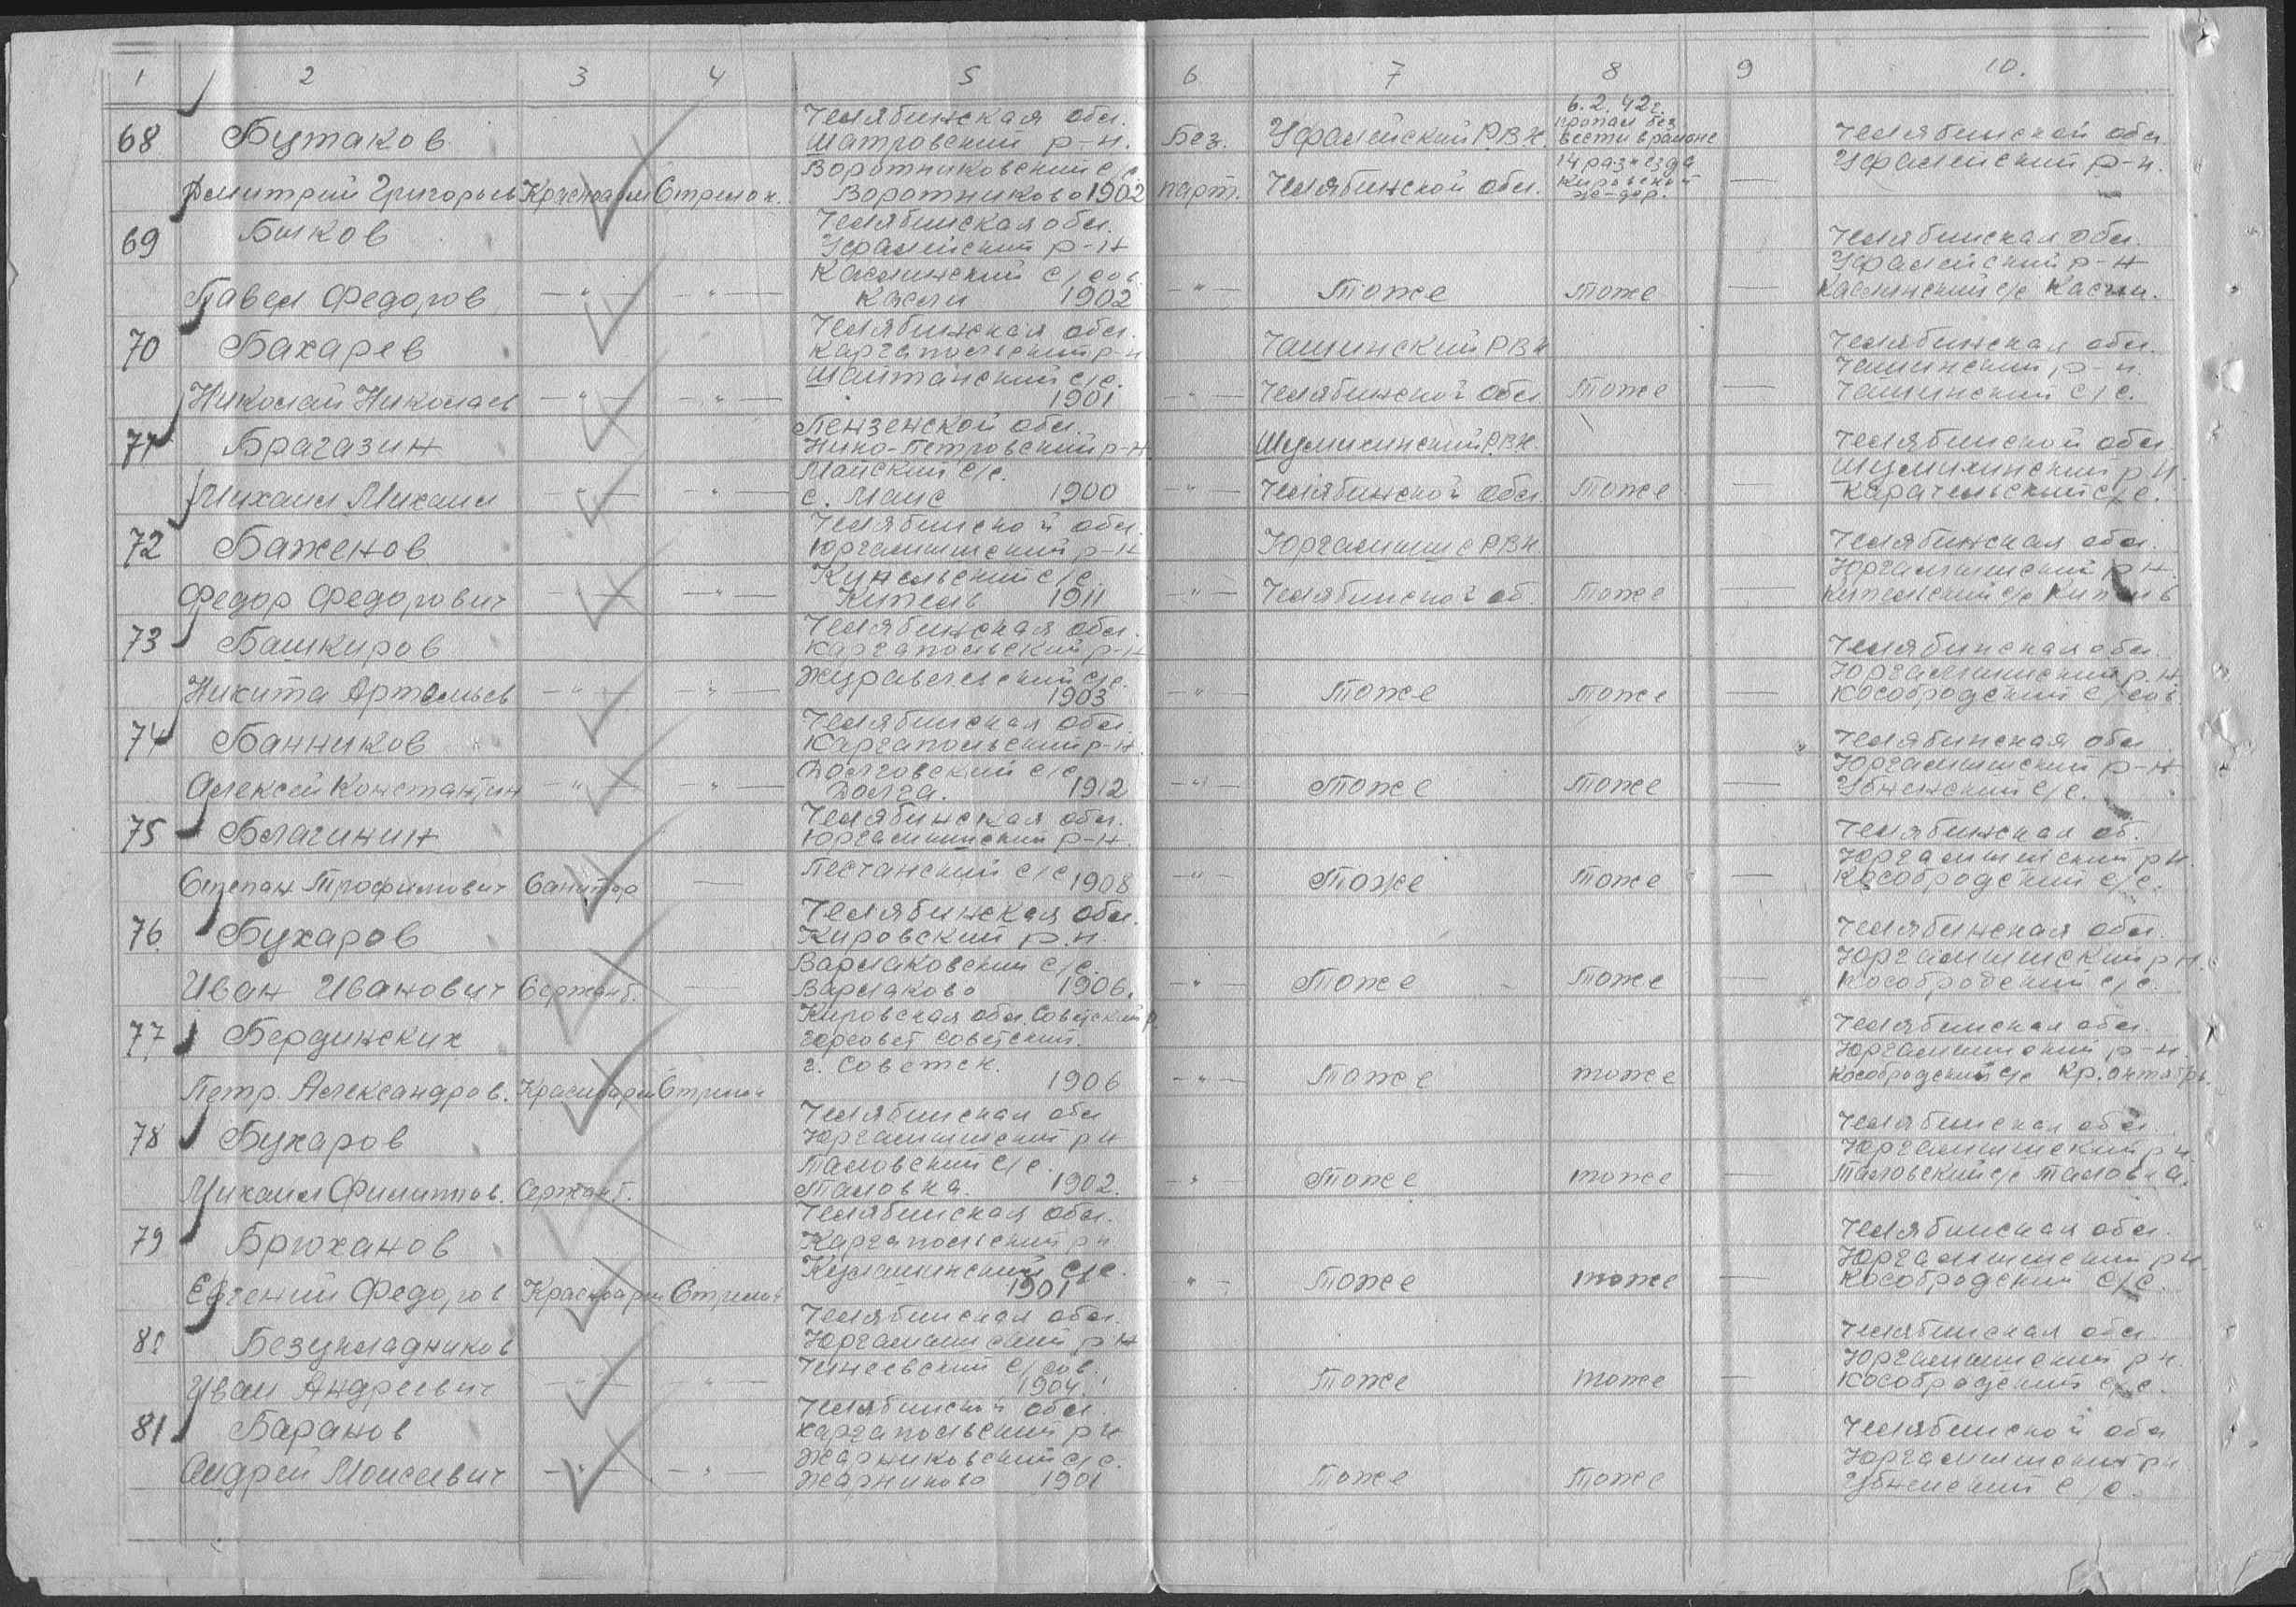 1 2 3 4 5 6 7 8 9 10.
68 Бутаков
Дмитрий Григорьев Красноарм Стрелок.
Челябинская обл.
Шатровский р-н.
Воротниковский с/с
Воротниково 1902
Без.
парт.
Уфалейский Р.В.К.
Челябинской обл.
6.2.42г.
пропал без
вести в районе
14 разъезда
Кировской
же-дор.
—
Челябинской обл
Уфалейский р-н.
69 Быков
Павел Федоров —"— —"—
Челябинская обл.
Уфалейский р-н
Каслинский с/сов
Касли 1902
—"— Тоже тоже —
Челябинская обл.
Уфалейский р-н
Каслинский с/с Касли.
70 Бахарев
Николай Николаев —"— —"—
Челябинская обл.
Каргапольский р-н
Шайтанский с/с.
1901
—"—
Чашинский РВК
Челябинской обл Тоже —
Челябинская обл.
Чашинский р-н.
Чашинский с/с.
71 Брагазин
Михаил Михаил —"— —"—
Пензенской обл.
Нико-Петровский р-н
Маисский с/с.
с. Маис 1900
—"—
Шумихинский Р.В.К.
Челябинской обл Тоже —
Челябинской обл
Шумихинский р-н.
Карачельский с/с.
72 Баженов
Федор Федорович —"— —"—
Челябинской обл.
Юргамышский р-н
Кипельский с/с
Кипель 1911
—"—
Юргамышс РВК
Челябинской об. Тоже —
Челябинская обл.
Юргамышский р-н.
Кипельский с/с Кипель
73 Башкиров
Никита Артемьев —"— —"—
Челябинская обл.
Каргапольский р-н
Журавлевский с/с.
1903
—"— Тоже Тоже —
Челябинская обл.
Юргамышский р.н
Кособродский с/сов
74 Банников
Алексей Константин —"— —"—
Челябинская обл.
Каргапольский р-н.
Долговский с/с
Долга. 1912
—"— Тоже Тоже —
Челябинская обл
Юргамышский р-н
с/с.
75 Благинин
Степан Трофимович Санитар —
Челябинская обл.
Юргамышский р-н.
Песчанский с/с 1908
—"— Тоже Тоже —
Челябинская об.
Юргамышский рн.
Кособродский с/с.
76 Бухаров
Иван Иванович Сержант. —
Челябинская обл.
Кировский р.н.
Варлаковский с/с.
Варлаково 1906.
—"— Тоже Тоже —
Челябинская обл.
Юргамышский рн.
Кособродский с/с.
77 Бердинских
Петр Александров. Красноарм Стрелок
Кировская обл. Советский р.
горсовет Советский.
г. Советск.
1906
—"— Тоже тоже
Челябинская обл.
Юргамышский р-н.
Кособродский с/с Кр. октябрь.
78 Бухаров
Михаил Филиппов. Сержант.
Челябинская обл
Юргамышский рн
Таловский с/с.
Таловка. 1902.
—"— Тоже тоже —
Челябинская обл.
Юргамышский рн.
Таловский с/с Таловка.
79 Брюханов
Евгений Федоров Красноарм Стрелок
Челябинская обл.
Каргапольский рн
с/с.
1901
"— Тоже тоже —
Челябинская обл.
Юргамышский рн.
Кособродский с/с.
80 Безукладников
Иван Андреевич —"— —"—
Челябинская обл.
Юргамышский рн
с/сов.
1904.
Тоже тоже —
Челябинская обл.
Юргамышский рн.
Кособродский с/с.
81 Баранов
Андрей Моисеевич —"— —"—
Челябинской обл.
Каргапольский рн
Жарниковский с/с.
Жарниково 1901
Тоже Тоже
Челябинской обл
Юргамышский рн
с/с.